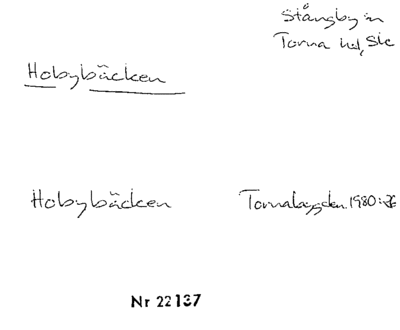 Stångby sn
Torna hd, Sk
Hobybäcken
Hobybäcken Tornabygden 1980:26
Nr 22137